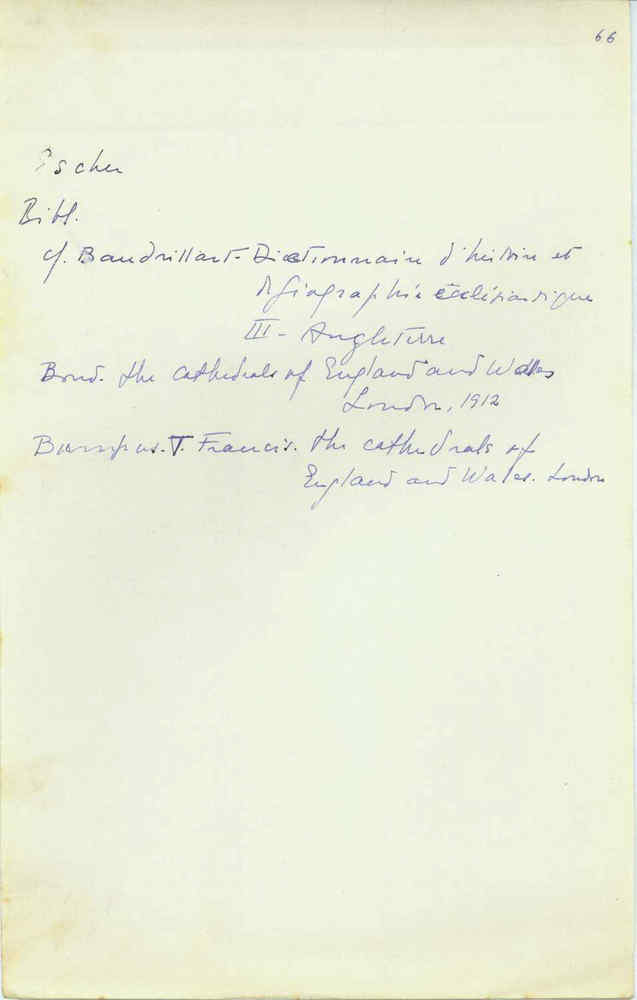 66
Escher
Bibl.
cf. Baudrillart - Dictionnaire d'histoire et
de géographie ecclésiastique
III - Angleterre
Bond. The cathedrals of England and Wales
London, 1912
Bumpus. T. Francis. The cathedrals of
England and Wales. London